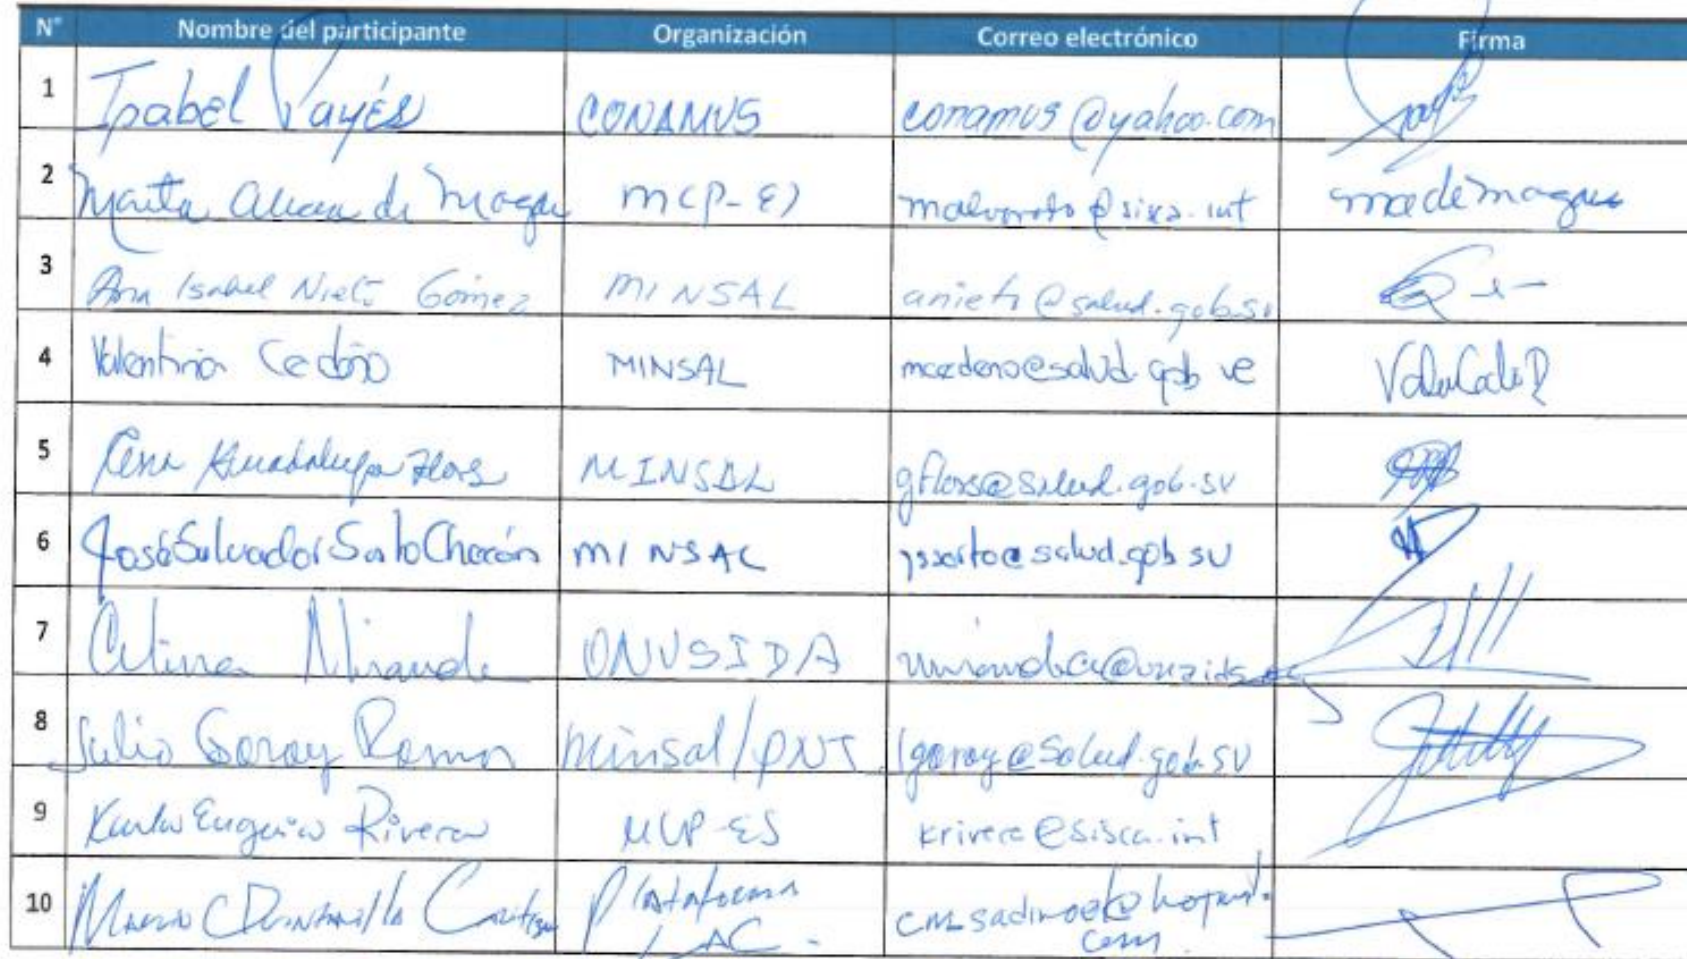 N° Nombre del participante Organización Correo electrónico Firma
1 Isabel Payés CONAMUS conamus@yahoo.com
2 Marta Alicia de Magaña MCP-ES @sisca.int
3 Ana Isabel Nieto Gómez MINSAL anieto@salud.gob.sv
4 Valentina Cedeño MINSAL mcedeno@salud.gob ve
5 Guadalupe Flores MINSAL gflores@salud.gob.sv
6 José Salvador Sorto Chacón MINSAL jssorto@salud.gob sv
7 Celina Miranda ONUSIDA
8 Julio Garay Ramos Minsal/PNT jgaray@salud.gob.sv
9 Karla Eugenia Rivera MCP-ES krivera@sisca.int
10 Plataforma
LAC.
com.